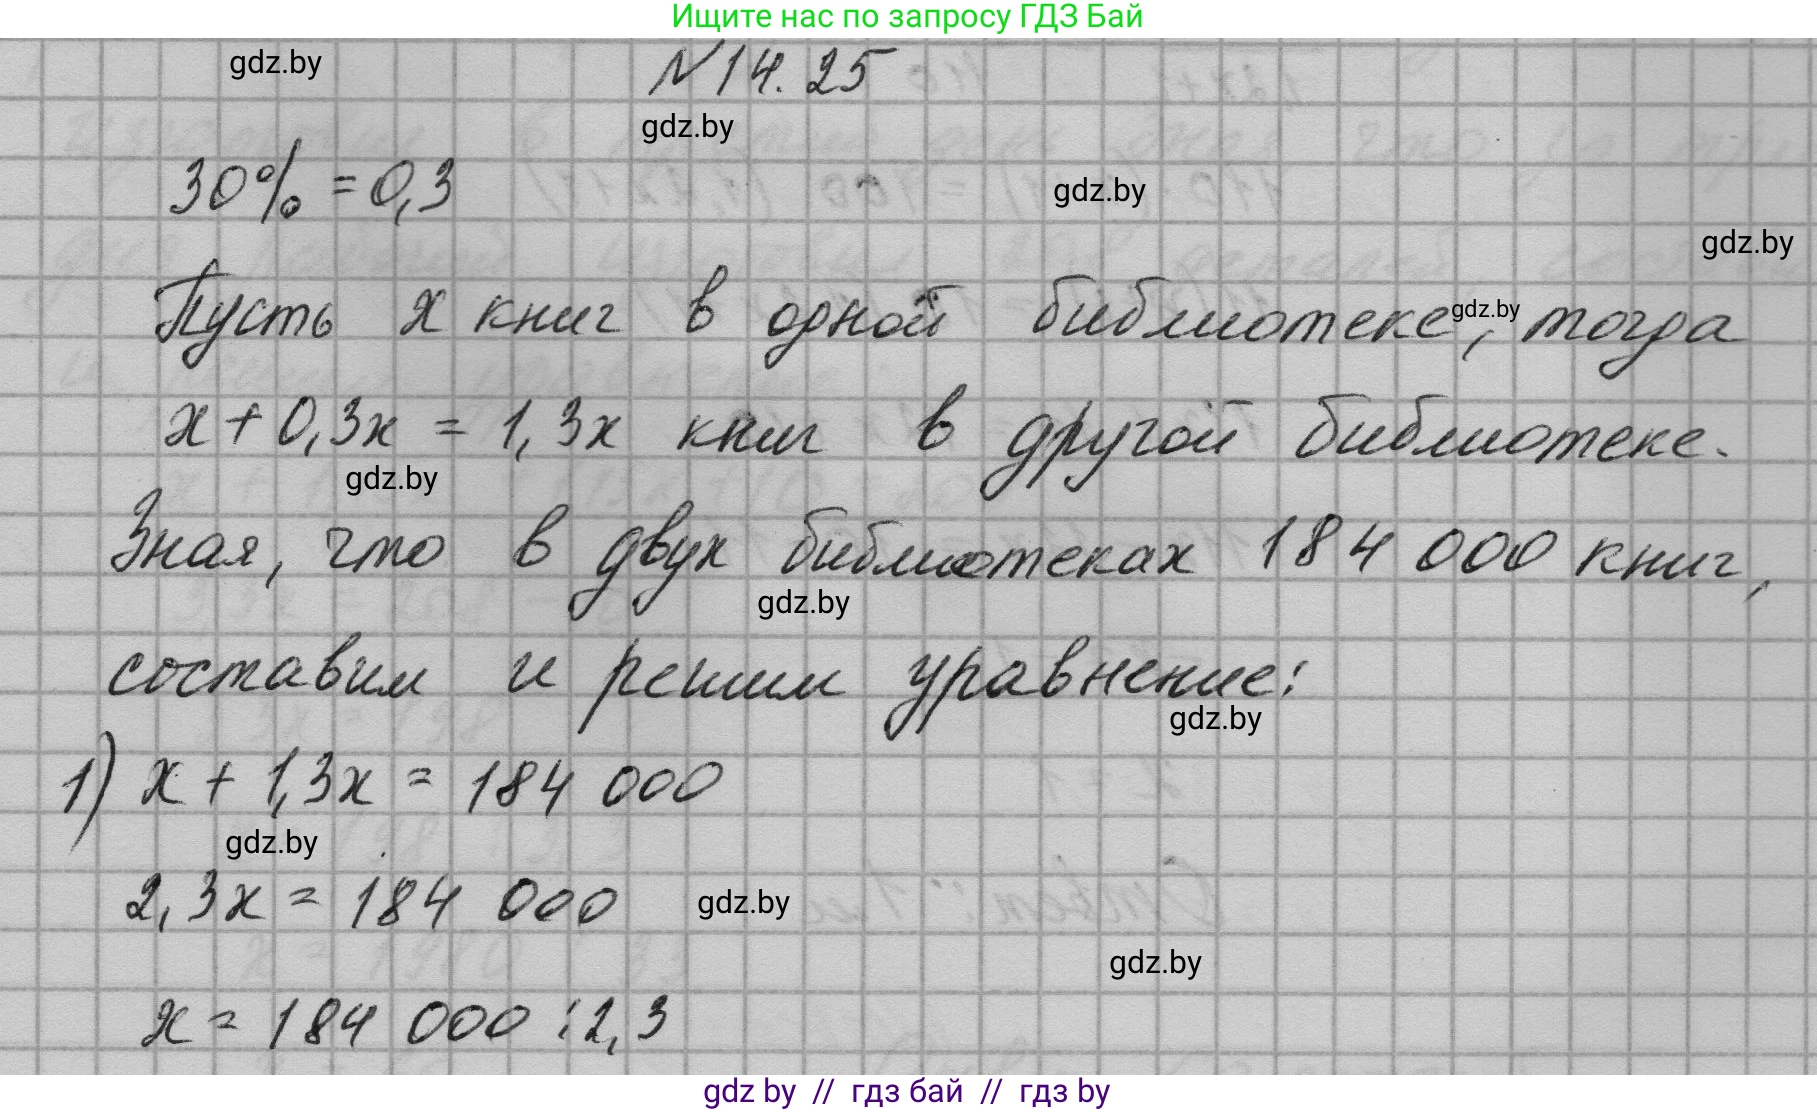 Ищите нас по запросу ГДЗ Бай
gdz.by
N14.25
gdz.by
30% = 0,3
gdz.by
gdz.by
Пусть x книг в одной библиотеке, тогда
gdz.by
x + 0,3x = 1,3x книг в другой библиотеке.
gdz.by
Зная, что в двух библиотеках 184 000 книг,
gdz.by
составим и решим уравнение:
gdz.by
1) x + 1,3x = 184 000
gdz.by
2,3x = 184 000
gdz.by
gdz.by
x = 184 000 : 2,3
gdz by // гдз бай // гдз by